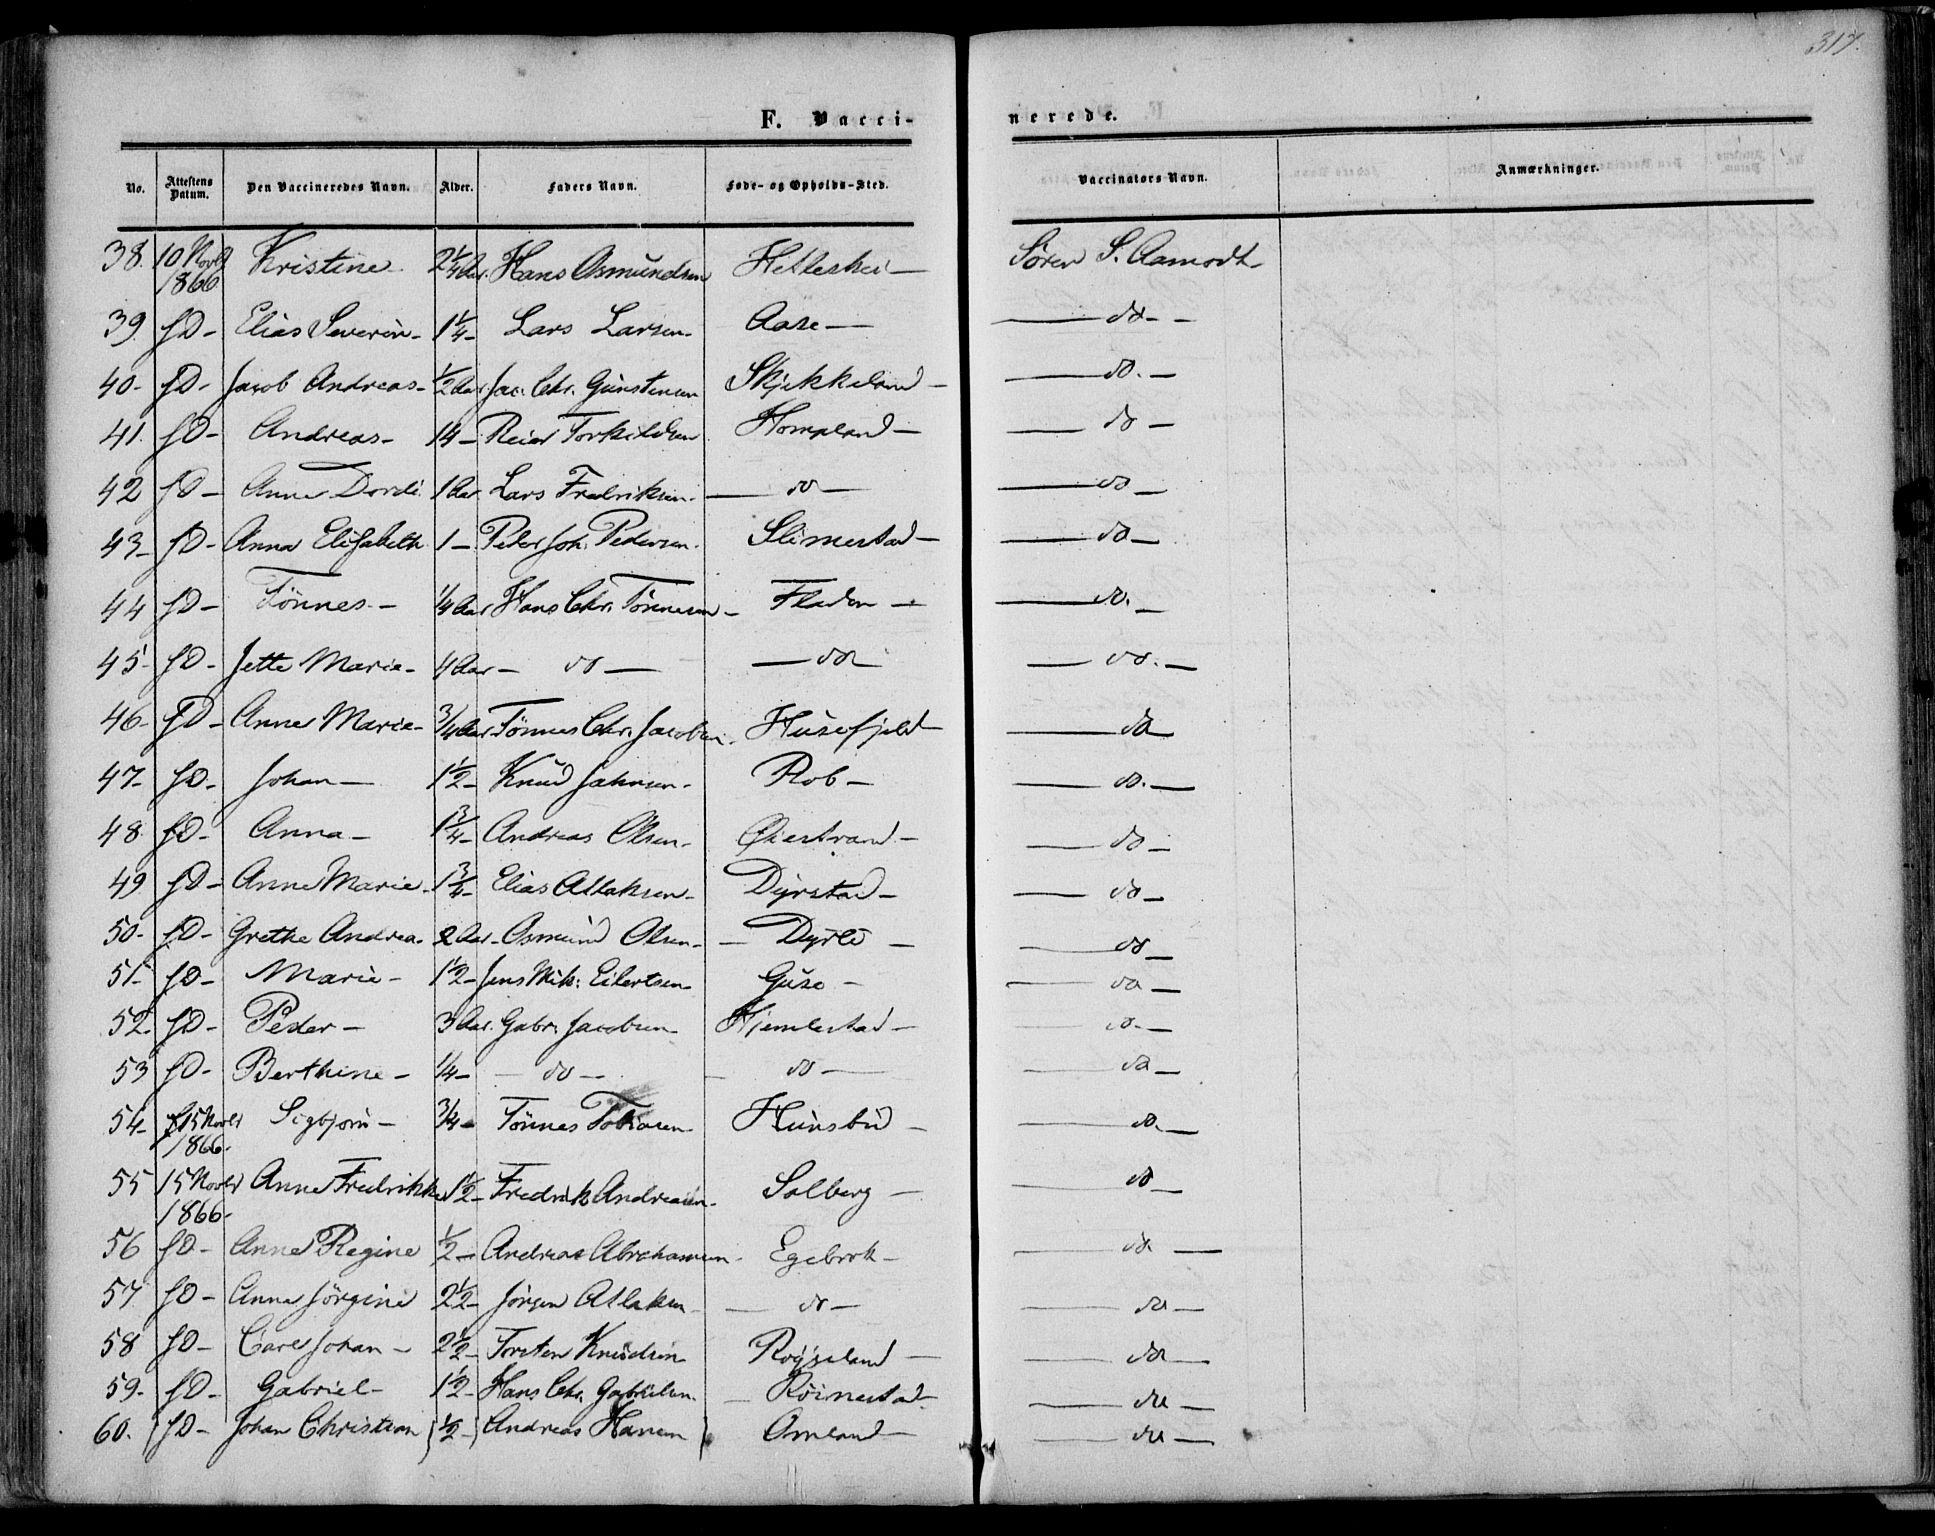 317.
F. Vaccinerede.
No. Attestens Datum. Den Vaccineredes Navn. Alder. Faders Navn. Føde- og Opholds-Sted. Vaccinators Navn. Anmærkninger.
38. 10 Novbr 1866 Kristine 2 1/4 Aar. Hans Osmundsen Helleshei — Sören S. Aamodt
39. sD — Elias Severin — 1 1/4 — Lars Larsen — Aase — — do —
40 — sD — Jacob Andreas — 1/2 Aar Jac. Chr. Gunstensen Skjekkeland — — do. —
41. sD — Andreas — 14 — Reier Torkildsen Hompland — — do —
42 sD — Anne Dordi 1 Aar Lars Fredriksen — — do — — do —
43 — sD — Anna Elisabeth 1 — Peder Joh. Pedersen. Slimestad — — do —
44 sD — Tönnes — 1/4 Aar Hans Chr. Tönnesen — Fladen — — do. —
45 — sD — Jette Marie — 4 Aar — do — — do — — do. —
46 — sD — Anne Marie — 3/4 Aar Tönnes Chr. Jacobsen. Husefjeld — do
47 — sD — Johan — 1 1/2 — Knud Jahnsen — Rob — — do. —
48 sD — Anna — 1 3/4 — Andreas Olsen — Øiestrand — — do —
49 sD — Anne Marie — 1 3/4 — Elias Atlaksen — Dyrstad — — do —
50 — sD — Grethe Andrea — 2 Aar — Osmund Olsen — — Dyrli — — do —
51 — sD — Marie — 1 1/2 — Jens Mik: Eilertsen — Guse — — do —
52. sD — Peder — 3 Aar. Gabr. Jacobsen — Hjemlestad — — do —
53 sD — Berthine — 1/4 — — do — — do — — do —
54 — 15 Novbr 1866. Sigbjörn — 3/4 — Tönnes Tobiasen — Hunsbed — — do —
55 15 Novbr 1866 — Anne Fredrikke 1 1/2 — Fredrik Andreasen — Solberg — — do —
56 sD — Anne Regine 1/2 — Andreas Abrahamsen — Egebrok — — do —
57 sD — Anna Jörgine 2 1/2 — Jörgen Atlaksen — — do — — do —
58 sD — Carl Johan — 2 1/2 — Torsten Knudsen Röyseland — — do —
59 — sD — Gabriel — 1 1/2 — Hans Chr. Gabrielsen. — Röimestad — — do —
60. sD — Johan Christian 1/2 — Andreas Hansen Omland — — do —